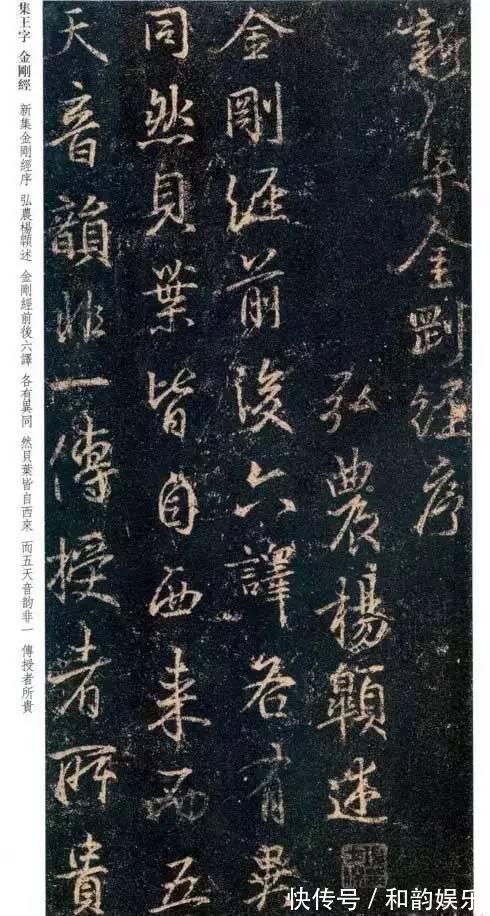 新集金剛經序
弘農楊顗述
金剛經前後六譯各有異
同然貝葉皆自西来而五
天音韻非一傳授者所貴
集王字 金剛經 新集金剛經序 弘農楊顗述 金剛經前後六譯 各有異同 然貝葉皆自西來 而五天音韵非一 傳授者所貴
快传号／和韵娱乐